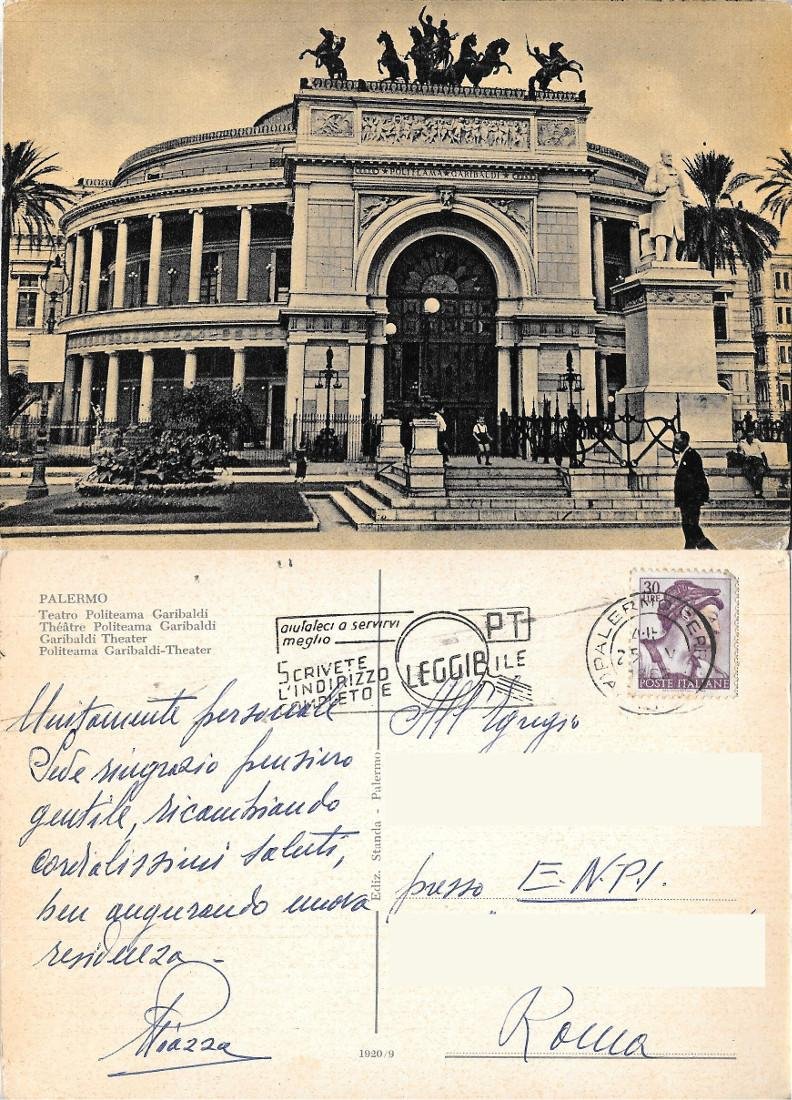 POLITEAMA GARIBALDI
PALERMO
Teatro Politeama Garibaldi
Théâtre Politeama Garibaldi
Garibaldi Theater
Politeama Garibaldi-Theater
aiutateci a servirvi
meglio
SCRIVETE
L'INDIRIZZO
COMPLETO E LEGGIBILE
PT
PALERMO
30
LIRE
POSTE ITALIANE
Unitamente personale
Sede ringrazio pensiero
gentile, ricambiando
cordialissimi saluti,
ben augurando nuova
residenza -
Piazza
Ediz. Standa - Palermo
1920/9
All'Egregio
presso E.N.P.I.
Roma